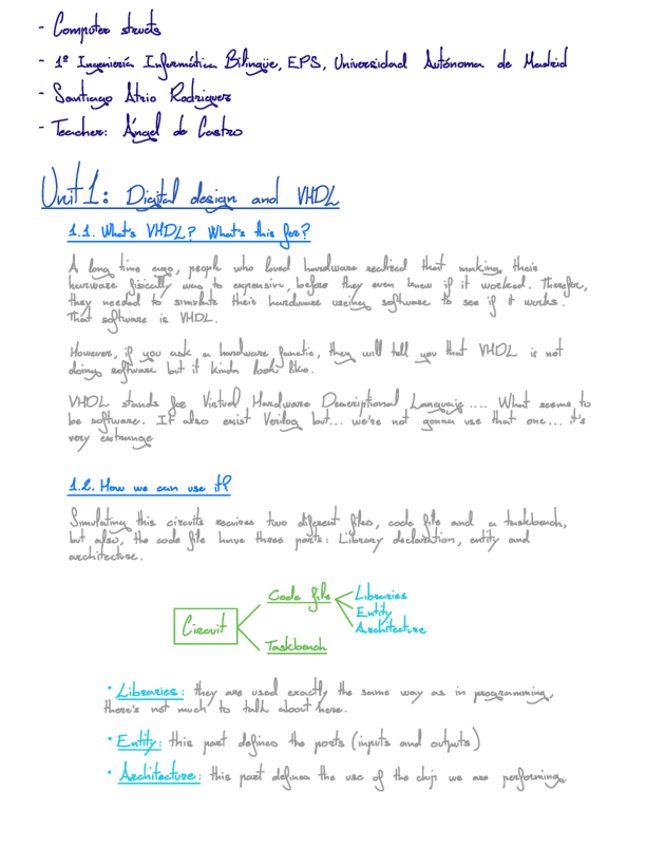 - Computer structs
- 1º Ingeniería Informática Bilingüe, EPS, Universidad Autónoma de Madrid
- Santiago Atrio Rodriguez
- Teacher: Ángel de Castro
Unit 1: Digital design and VHDL
1.1. What's VHDL? What's this for?
A long time ago, people who loved hardware realized that making their
harware fisically was to expensive, before they even knew if it worked. Therefor,
they needed to simulate their hardware using software to see if it works.
That software is VHDL.
However, if you ask a hardware fanatic, they will tell you that VHDL is not
doing software but it kinda look like.
VHDL stands for Virtual Hardware Descriptional Language .... What seems to
be software. It also exist Verilog but... we're not gonna use that one... it's
very exhrange
1.2. How we can use it?
Simulating this circuits requires two diferent files, code file and a taskbench,
but also, the code file have three parts: Library declaration, entity and
architecture.
Circuit
Code file
Taskbench
Libraries
Entity
Architecture
· Libraries: they are used exactly the same way as in programming,
there's not much to talk about here.
· Entity: this part defines the ports (inputs and outputs)
· Architecture: this part defines the use of the chip we are performing